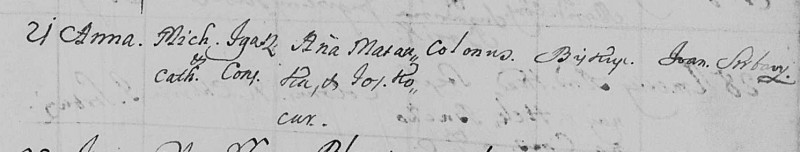 21 Anna. Mich. Igaz Aña Matau„ Colonus. Bisztrye. Joan. Srbany.
& Cath. Cons. ka, & Jos. Ko„
cur.